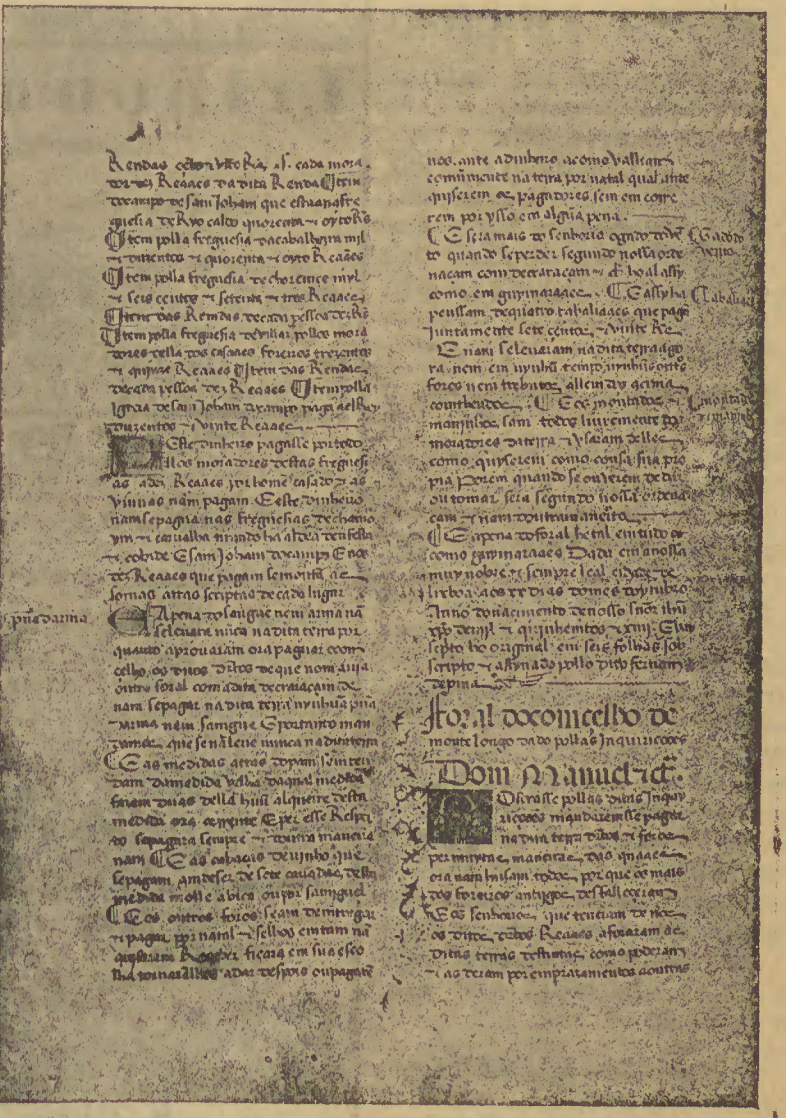 Rendas cento vynte R̃s. s. cada mora
dor dez Reaaes da dita Renda ¶ Item
do campo de sam Joham que esta na fre
guesia de Ryo caldo quorenta e oyto R̃s
¶ Item polla freguesia da cabalheira mil
e duzentos e quorenta e oyto Reaaes
¶ Item polla freguesia de chorence myl
e seis centos e setenta e tres Reaaes
¶ Item das Rendas de cada pessoa dez R̃s
¶ Item polla freguesia de villar pollos mora
dores della dos casaaes foreiros trezentos
e quinze Reaaes ¶ Item das Rendas
de cada pessoa dez Reaaes ¶ Item polla
Igreia de sam Joham do campo paga a el Rey
duzentos e vinte Reaaes
Este dinheiro pagasse por todo
llos moradores destas freguesi
as a dez Reaaes por home casado e as
viuuas nam pagam. E este dinheiro
nam se pagua nas freguesias de chamo
ym e carualha
e cobide E sam Joham do campo E nos
dez Reaaes que pagam se monta as
somas atras scriptas de cada lugar
A pena do sangue nem arma nã
se leuara nũca na dita terra por
quanto aprouaram ora paguar ao con
celho os ditos dtos de que nom auia
outro foral com a dita decraraçam de
nam se pagar na dita terra nynhuũa pña
darma nem samgue. E portanto man
damos que se nã leue nunca na dita terra
¶ E as medidas atras
dam da medida velha da qual medida
fazem duas della huũ alqueire desta
medida ora corrente E per esse Respei
to se pagara sempre e doutra maneira
nam ¶ E as cabaças de vinho que
se pagam, am de ser de sete canadas desta
medida molle a bica ou por sam miguel
¶ E os outros foros se am dentregar
e pagar por natal e se lhos emtam nã
quiserem Reçeber ficara em sua esco
lha tornar lhos a dar despois ou pagarẽ
pña darma
nos. ante a dinheiro a como valliam
comũmente na terra por natal qual ante
quiserem os pagadores. sem em corre
rem por ysso em algũa pena.
¶ E sera mais do senhorio o gado do vẽ
to quando se perder segundo nossa orde
naçam com decraraçam
como em guymaraaes. ¶ E assy ha
penssam de quatro tabaliaães que paga
Juntamente sete centos e vinte R̃s
E nam se leuaram na dita terra ago
ra, nem em nynhũ tempo nynhũus outs
foros nem trebutos, allem dos açima
conthẽudos ¶ E os montados e
maninhos sam todos liuremente dos
moradores da terra e vsaram delles
como quyserem como cousa sua pro
pia Porem quando se ouuerem de dar
ou tomar sera segundo nossa ordena
cam e nam doutra maneira
¶ E a pena do foral he tal em tudo
como guymaraaes. Dada em a nossa
muy nobre e sempre leal çidade de
lixboa aos xx dias do mes doytubro
Anno do naçimento de nosso snõr ihũ
xpo de mil e quinhentos e xiiii. E
septo ho original em seis folhas sob
scripto e assynado pollo dito fernam
de pina
G. ado do
vento
Tabaliaães
montados
e maninhos
Foral do comcelho de
monte longo dado pollas Inquiriçoões
Dom Manuel etc.
Ostrasse pollas ditas Inquy
riçoões mandaremsse pagar
na dita terra dtos e foros
per muytas maneiras, das quaaes
ora nam husam todos por que os mais
dos foreiros antijgos desfalleceram
E os senhorios que tenham de nos
os ditos dtos Reaaes aforaram as
ditas terras destintas, como poderam
e as deram por emprazamentos a outras